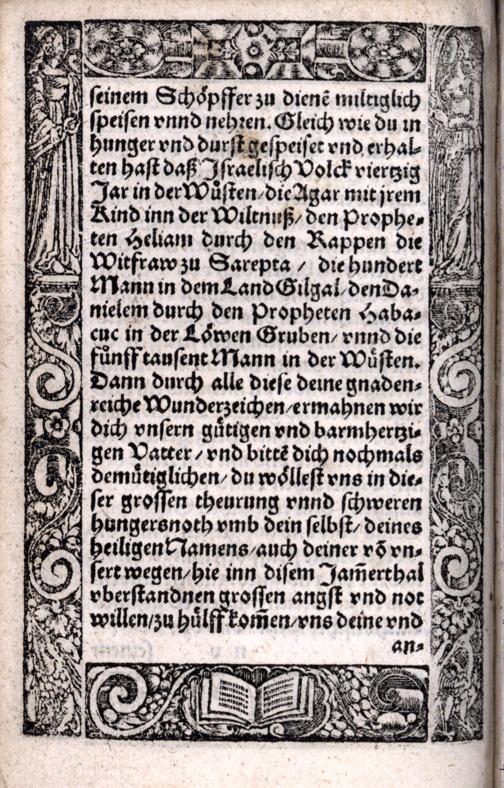 seinem Schöpffer zu dienẽ miltiglich
speisen vnnd nehren. Gleich wie du in
hunger vnd durst gespeiset vnd erhal⸗
ten hast daß Jsraelisch Volck viertzig
Jar in der Wüsten/die Agar mit jrem
Kind inn der Wiltnuß/den Prophe⸗
ten Heliam durch den Rappen die
Witfraw zu Sarepta / die hundert
Mann in dem Land Gilgal/den Da⸗
nielem durch den Propheten Haba⸗
cuc in der Löwen Gruben/vnnd die
fünff tausent Mann in der Wüsten.
Dann durch alle diese deine gnaden⸗
reiche Wunderzeichen/ermahnen wir
dich vnsern gütigen vnd barmhertzi⸗
gen Vatter/vnd bittẽ dich nochmals
demütiglichen/du wöllest vns in die⸗
ser grossen theurung vnnd schweren
hungersnoth vmb dein selbst/deines
heiligen Namens/auch deiner võ vn⸗
sert wegen/hie inn disem Jam̃erthal
vberstandnen grossen angst vnd not
willen/zu hülff kom̃en/vns deine vnd
an⸗